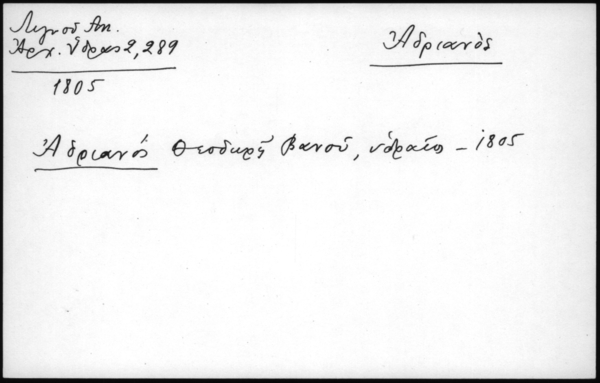 Λιγνοῦ Ἀπ.
Ἀρχ. Ὕδρας 2, 289
1805
Ἀδριανὸς
Ἀδριανός Θεοδωρῆ Βανοῦ, ὑδραῖος – 1805